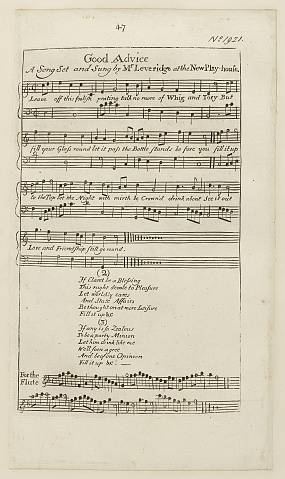 47
No. 1921.
Good Advice
A Song Set and Sung by Mr. Leveridge at the New Play-house.
Leave off this foolish prating talk no more of Whig and Tory But
fill your Glass round let it pass the Bottle stands be fore you fill it up
to the Top let the Night with mirth be Crown'd drink about See it out
Love and Friendship still go round.
(2)
If Claret be a Blessing
This night devote to Pleasure
Let worldly cares
And State Affairs
Be thought on at more Leisure
Fill it up &c
(3)
If any is so Zealous
To be a party Minion
Let him drink like me
We'll soon agree
And be of one Opinion
Fill it up &c
For the
Flute